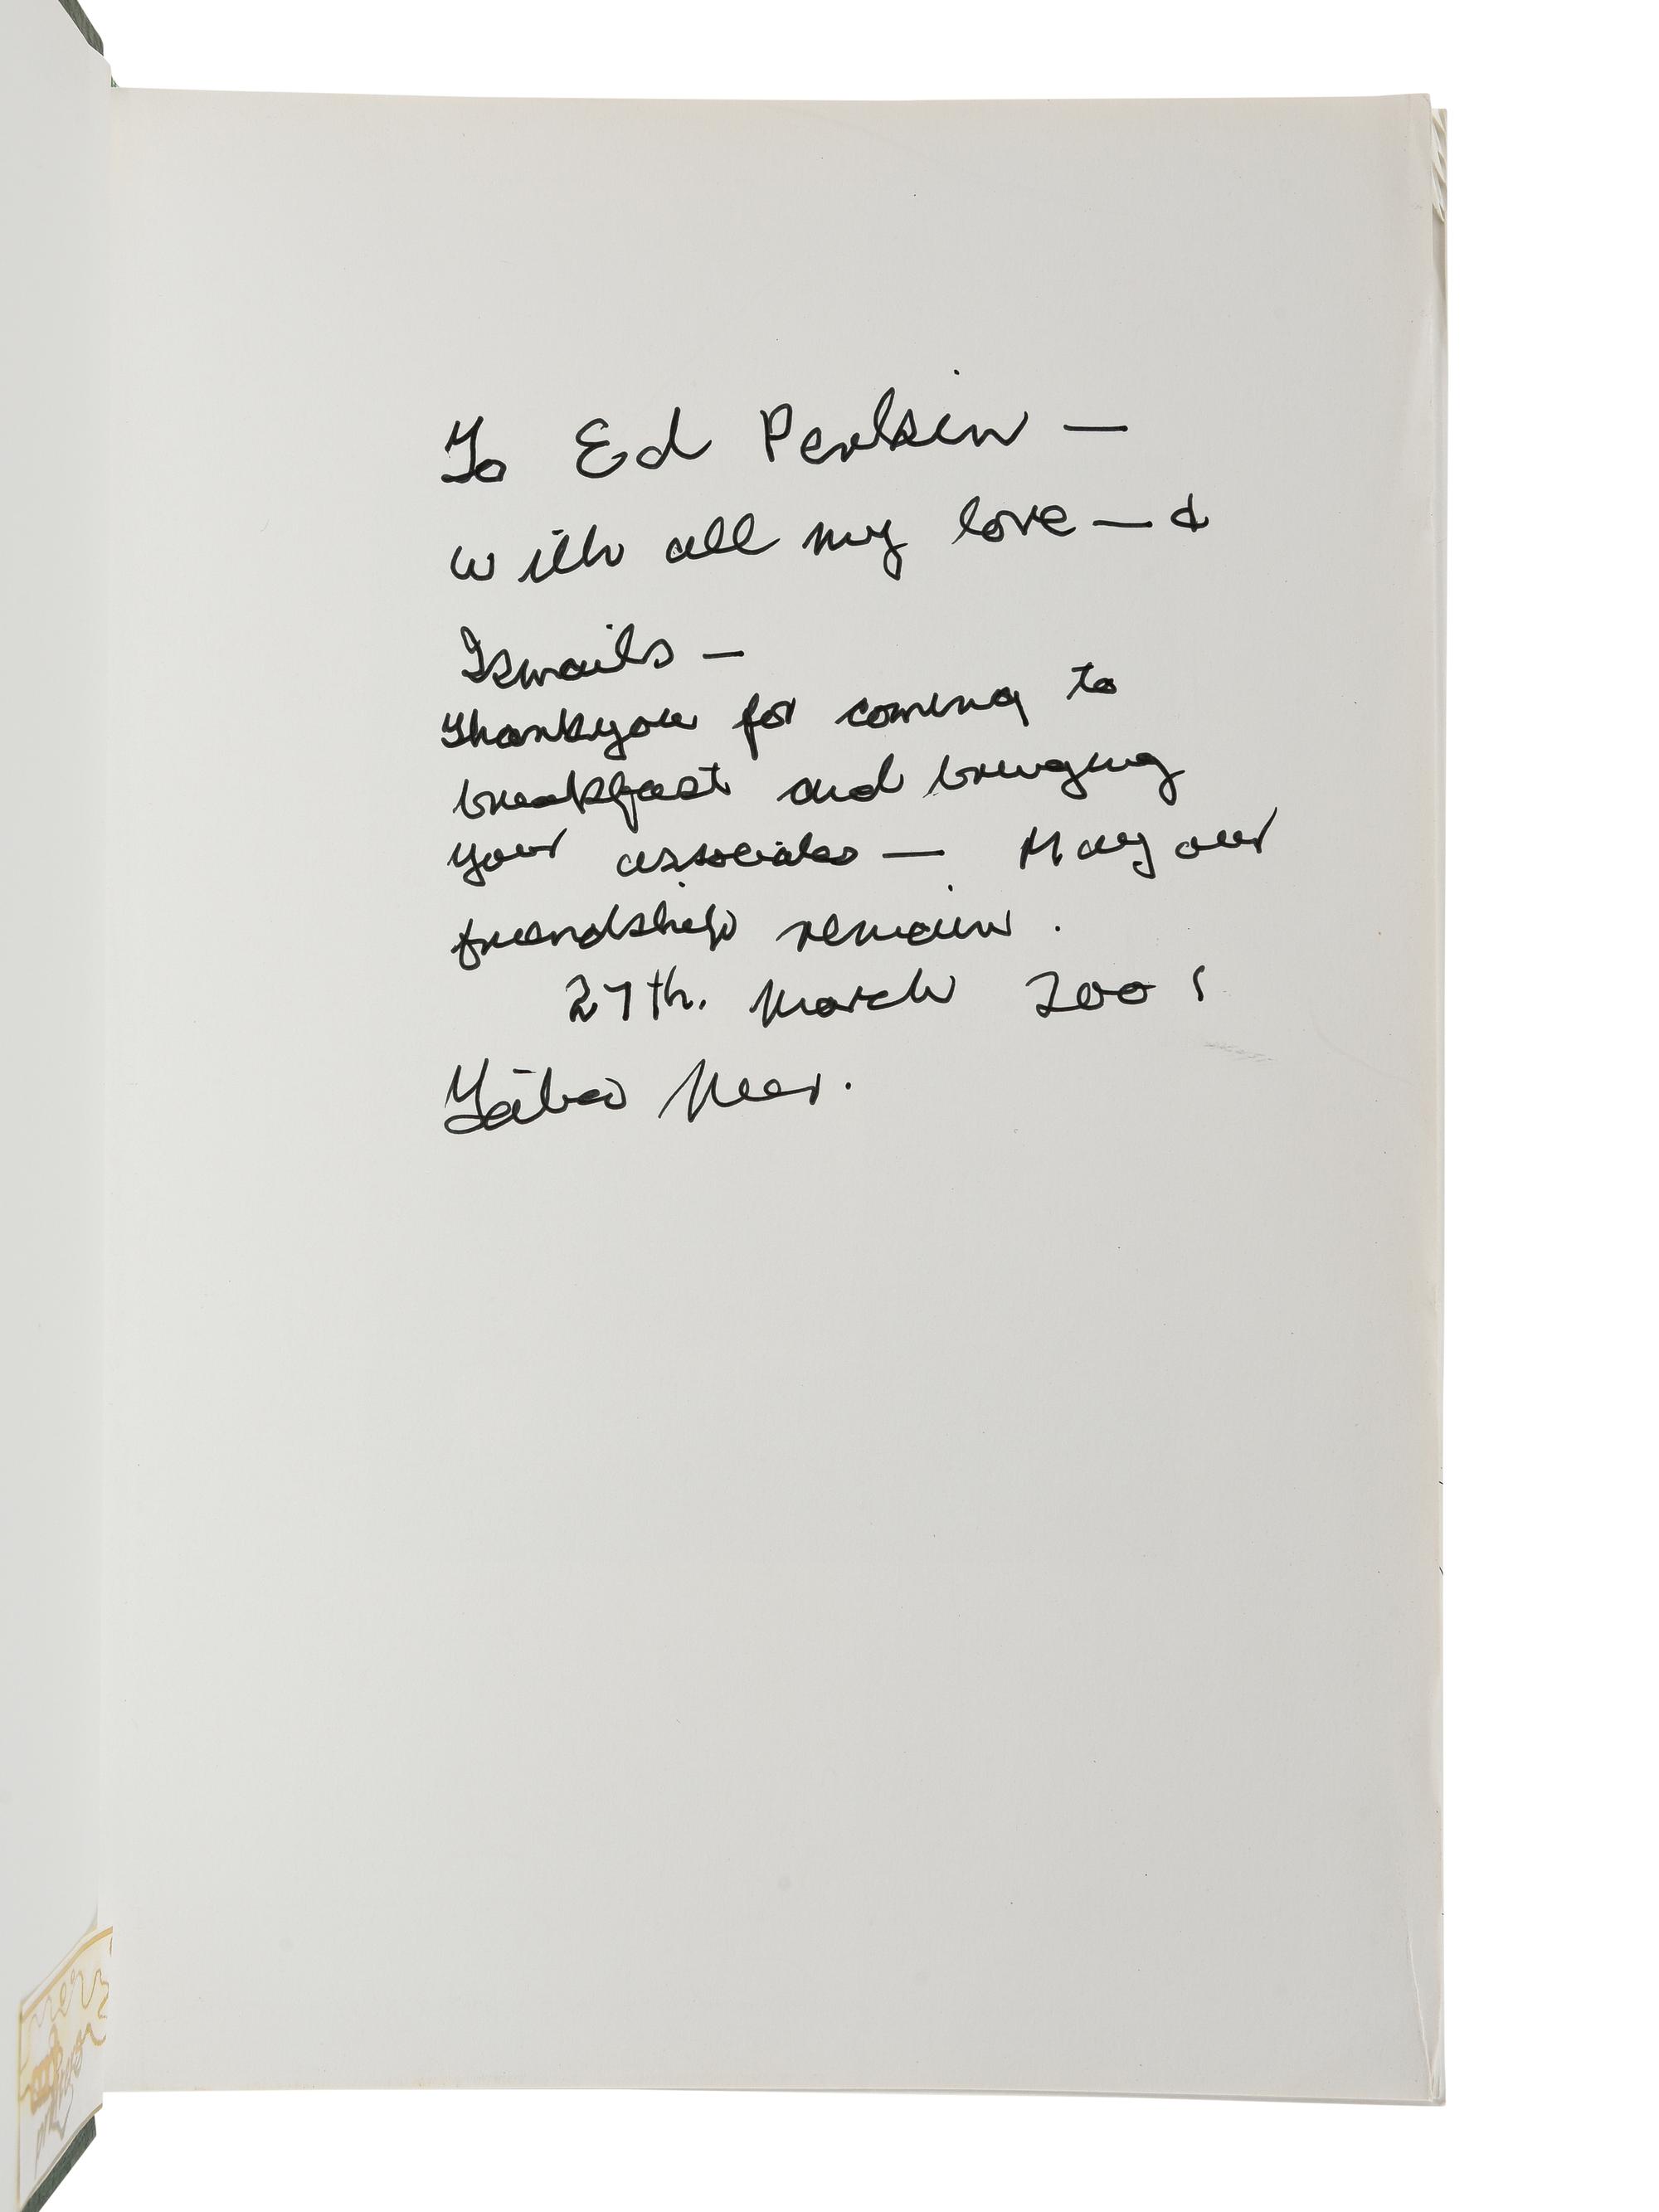 To Ed Perkin —
with all my love — &
Ismails —
Thankyou for coming to
breakfast and bringing
your associates — May our
friendship remain.
27th. March 2001